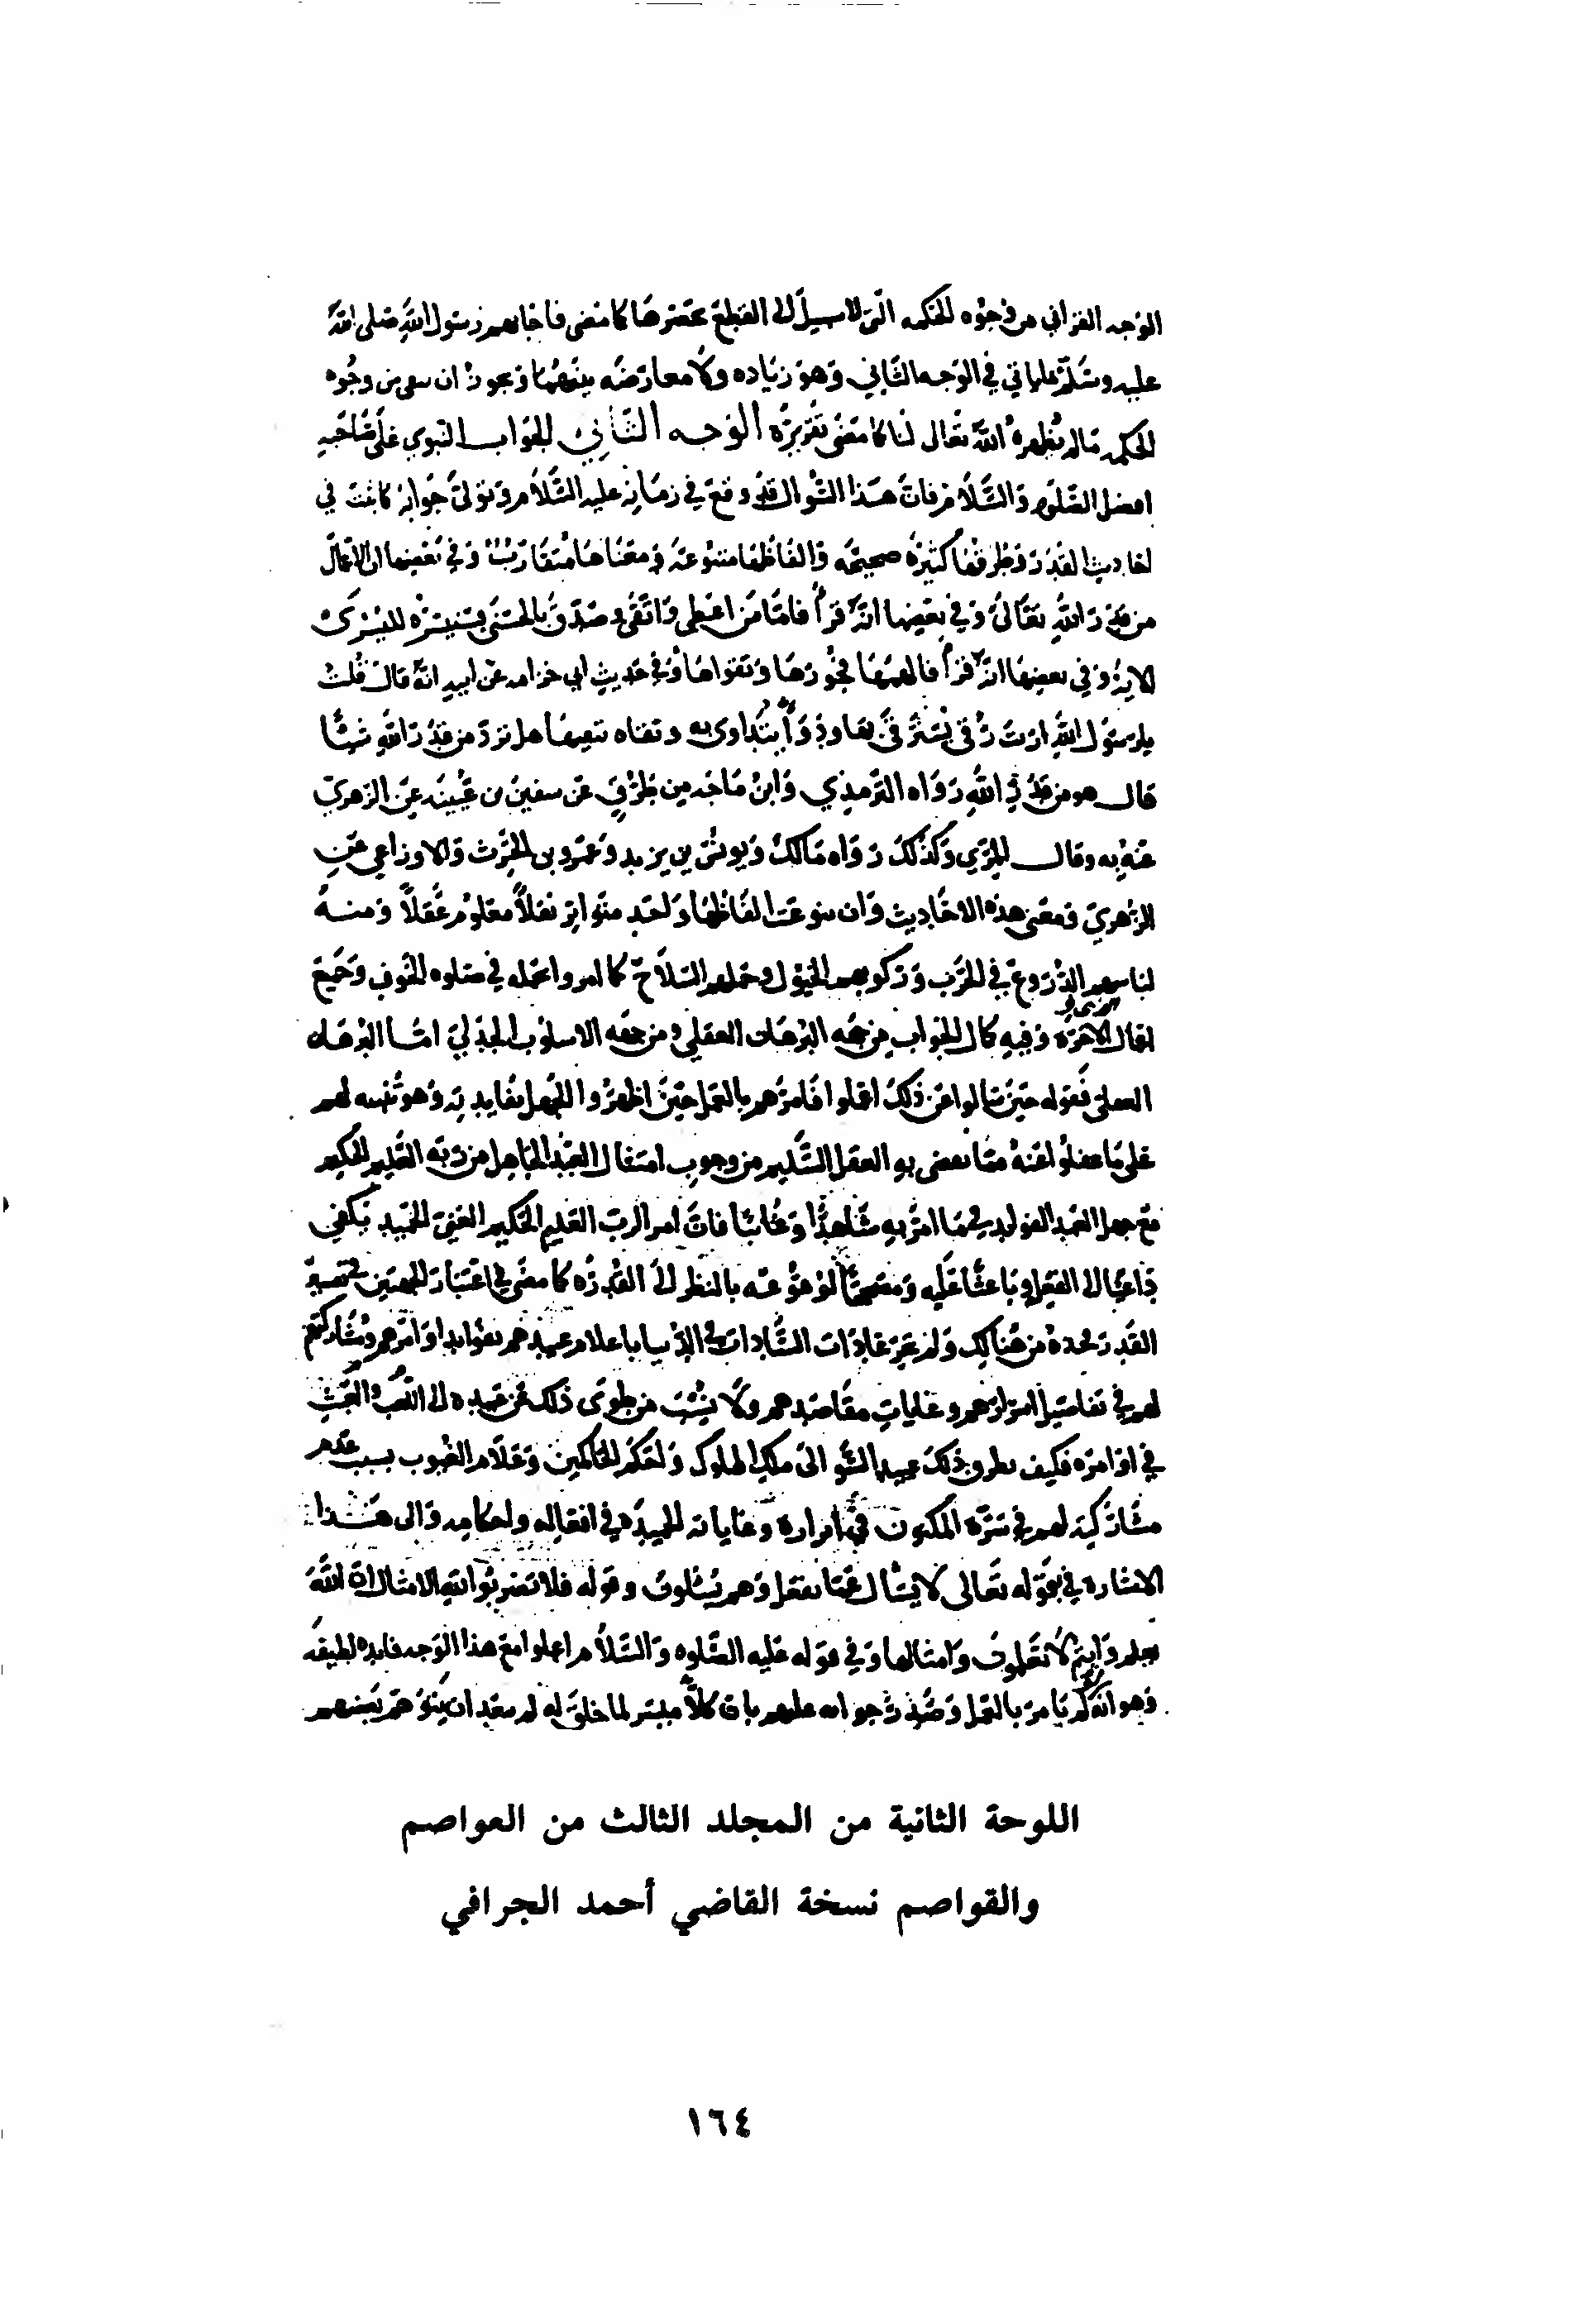 الوجه القرآني من وجوه الحكمه التي لا سبيل الى القطع بحصرها كما مضى فاجابهم رسول الله صلى الله
عليه وسلم بما ياتي في الوجه الثاني وهو زياده ولا معارضه بينهما ويجوز ان يبقى من وجوه
الحكمه ما لم يظهره الله تعالى لنا كما مضى تقريره الوجه الثاني الجواب النبوي على صاحبه
افضل الصلوه والسلام فان هذا السوال قد وقع في زمانه عليه السلام وتولى جوابه كما ثبت في
احاديث القدر وطرقها كثيرة صحيحه والفاظها متنوعة ومعناها متقارب وفي بعضها ان الاعمال
من قدر الله تعالى وفي بعضها انه قرأ فاما من اعطى واتقى وصدق بالحسنى فسنيسره لليسرى
الايه وفي بعضها انه قرأ فالهمها فجورها وتقواها وفي حديث ابي خزامه عن ابيه انه قال قلت
يا رسول الله ارايت رقى نسترقى بها ودوآ نتداوى به وتقاه نتقيها هل ترد من قدر الله شيئا
قال هو من قدر الله رواه الترمذي وابن ماجه من طرق عن سفين بن عيينه عن الزهري
عنه به وقال المزي وكذلك رواه مالك ويونس بن يزيد وعمرو بن الحرث والاوزاعي عن
الزهري ومعنى هذه الاحاديث وان تنوعت الفاظها واحد متواتر نقلاً معلوم عقلاً ومنه
لباسهم الدروع في الحرب وركوبهم الخيول وحملهم السلاح كما امروا بحمله في صلوه الخوف وجميع
افعال الآخرة وفيه كمال الجواب من جهه البرهان العقلي ومن جهه الاسلوب الجدلي اما البرهان
العقلي فقوله حين سالوا عن ذلك اعملوا فامرهم بالعمل حين اظهروا الجهل بفايدته وهو تنبيه لهم
على ما غفلوا عنه مما يقضي به العقل السليم من وجوب امتثال العبد الجاهل من ربه العليم الحكيم
مع جهل العبد لفوايد ما امر به شاهدًا وغائبًا فان امر الرب العليم الحكيم الغني الحميد يكفي
داعيًا الى الفعل وباعثًا عليه ومقتضيًا لوقوعه بالنظر الى القدره كما مضى في اعتبار الجهتين
القدر من هنالك ولم تجر عادات السادات في الدنيا باعلام عبيدهم بفوايد اوامرهم ومشاركتهم
لهم في تفاصيل اسرارهم وغايات مقاصدهم ولا من طوى ذلك عن عبيده الى اللعب والعبث
في اوامره فكيف ذلك عبيد السو الى ملك الملوك واحكم الحاكمين وعلام الغيوب بسبب عدم
مشاركته لهم في سره المكنون في اسراره وغاياته الحميده في افعاله واحكامه والى هذا
الاشاره في قوله تعالى لا يسأل عما يفعل وهم يسئلون وقوله فلا تضربوا لله الامثال ان الله
يعلم وانتم لا تعلمون وامثالها وفي قوله عليه الصلوه والسلام اعملوا مع هذا الوجه فايده لطيفه
وهو انه لو لم يامر بالعمل وصدر جوابه عليهم بان كلاً ميسر لما خلق له لم يبعد ان يتوهم بعضهم
اللوحة الثانية من المجلد الثالث من العواصم
والقواصم نسخة القاضي أحمد الجرافي
١٦٤